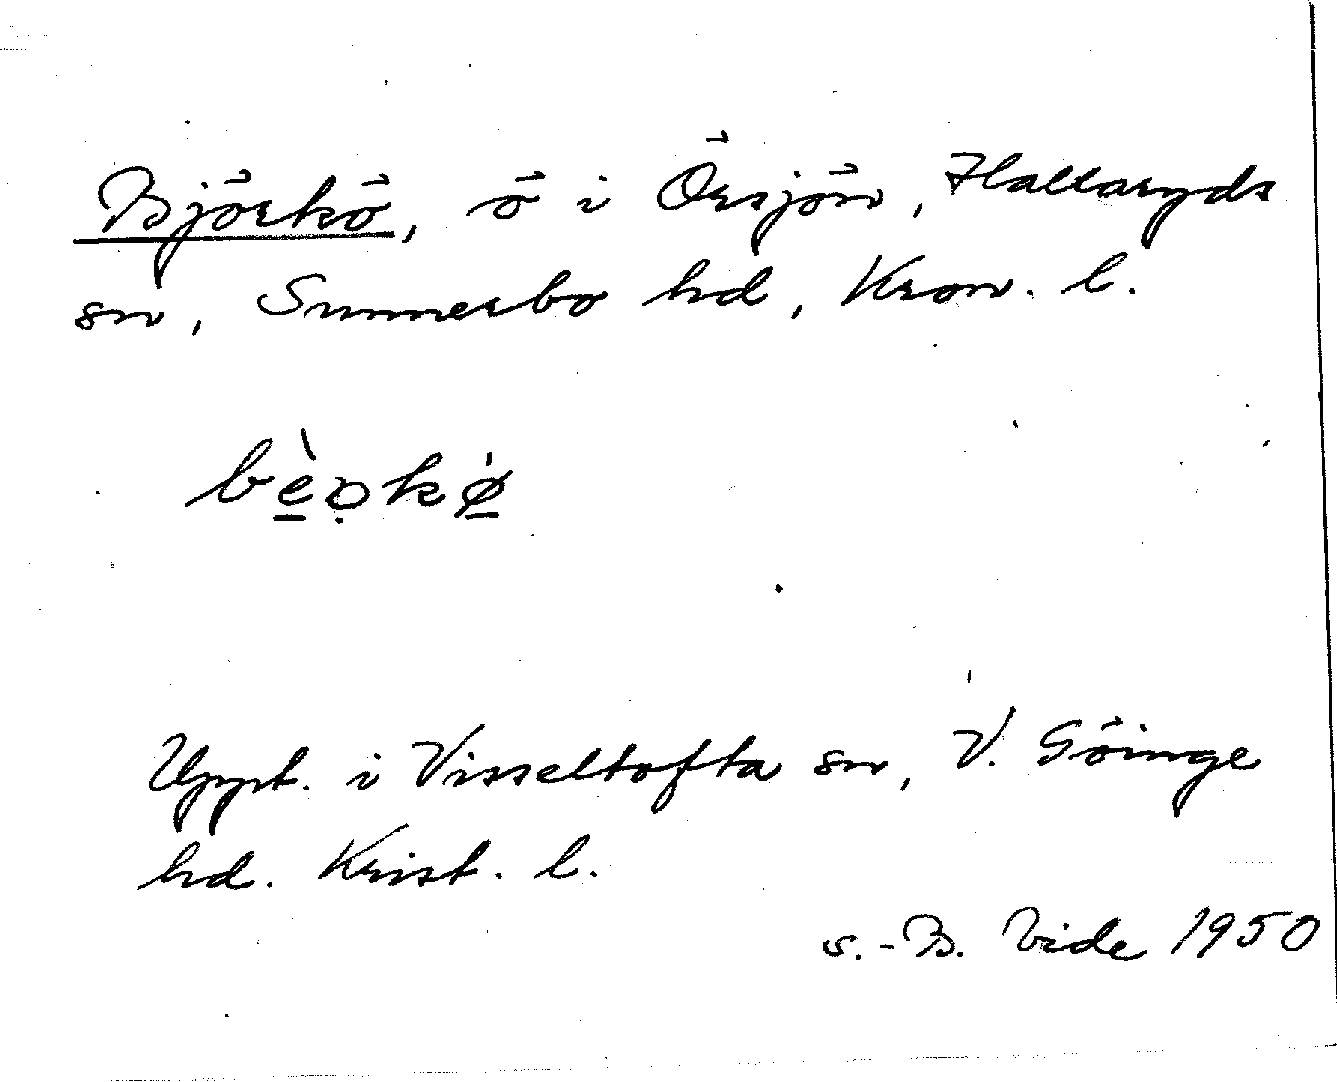 Björkö, ö i Örsjön, Hallaryds
sn, Sunnerbo hd, Kron. l.
Uppt. i Visseltofta sn, V. Göinge
hd. Krist. l.
S.-B. Vide 1950